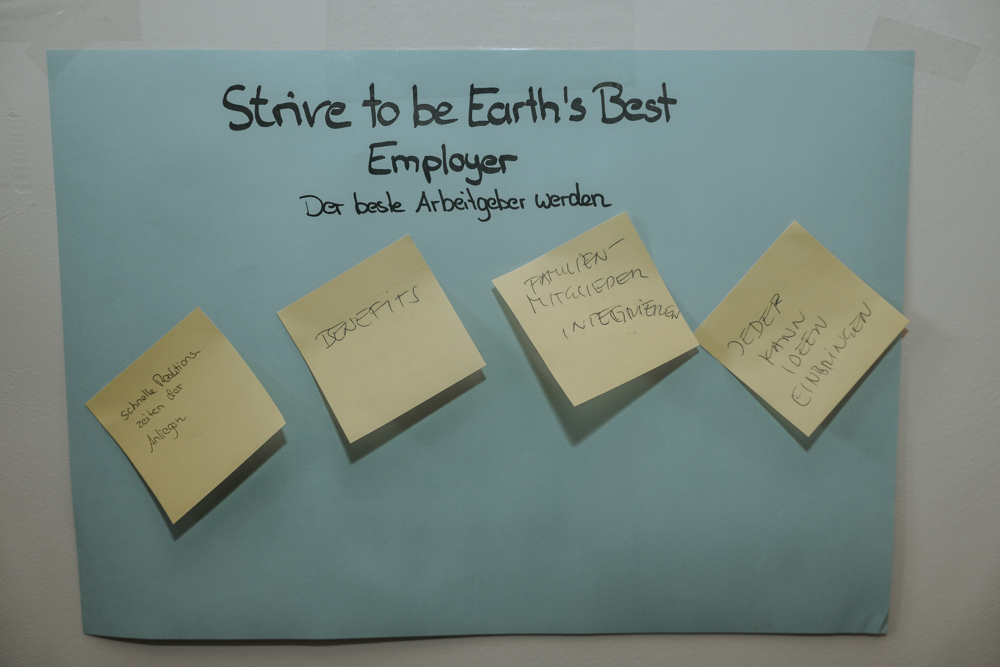 Strive to be Earth's Best
Employer
Der beste Arbeitgeber werden
schnelle Reaktions
zeiten der
Anliegen
BENEFITS
FAMILIEN-
MITGLIEDER
INTEGRIEREN
JEDER
KANN
IDEEN
EINBRINGEN